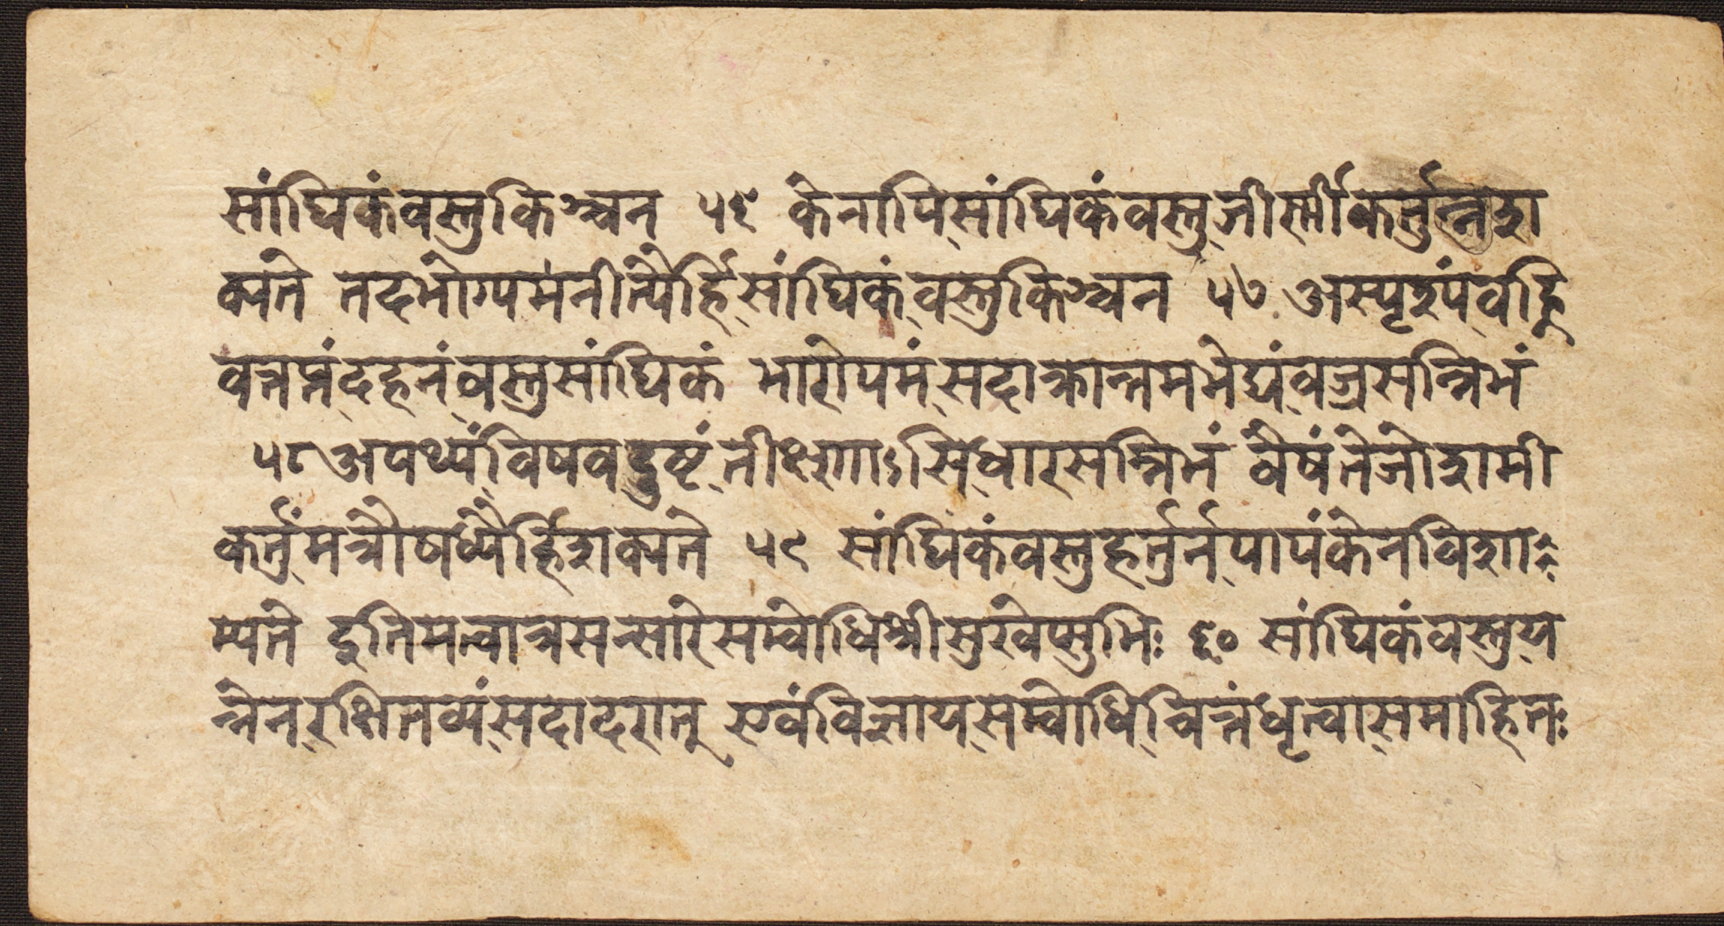 सांघिकंवस्तुकिञ्चन ५६ केनापिसांघिकंवस्तुजीर्त्तीकर्तुन्नश
क्यते तदभोग्यमनीत्यैर्हिसांघिकंवस्तुकिञ्चन ५७ अस्पृशंवह्नि
वत्तप्तंदहनंवस्तुसांघिकं भारोपमंसदाक्रान्तमभेद्यंवज्रसन्निभं
५८ अपथ्यंविषवद्दुष्टंतीक्ष्णाऽसिधारसन्निभं वैषंतेजोशमी
कर्तुंमन्त्रौषध्यैर्हिशक्यते ५९ सांघिकंवस्तुहर्तुर्नपापंकेनविशा
म्यते इतिमत्वात्रसन्सारेसम्बोधिश्रीसुखेप्सुभिः ६० सांघिकंवस्तुय
त्नेनरक्षितव्यंसदादरात् एवंविज्ञायसम्बोधिचित्तंधृत्वासमाहितः